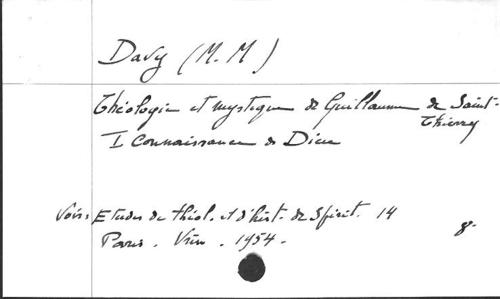 Davy (M. M)
Théologie et mystique de Guillaume de Saint-
Thierry
I Connaissance de Dieu
Voir: Etudes de théol. et d'hist. de Spirit. 14
8-
Paris. Vrin. 1954.